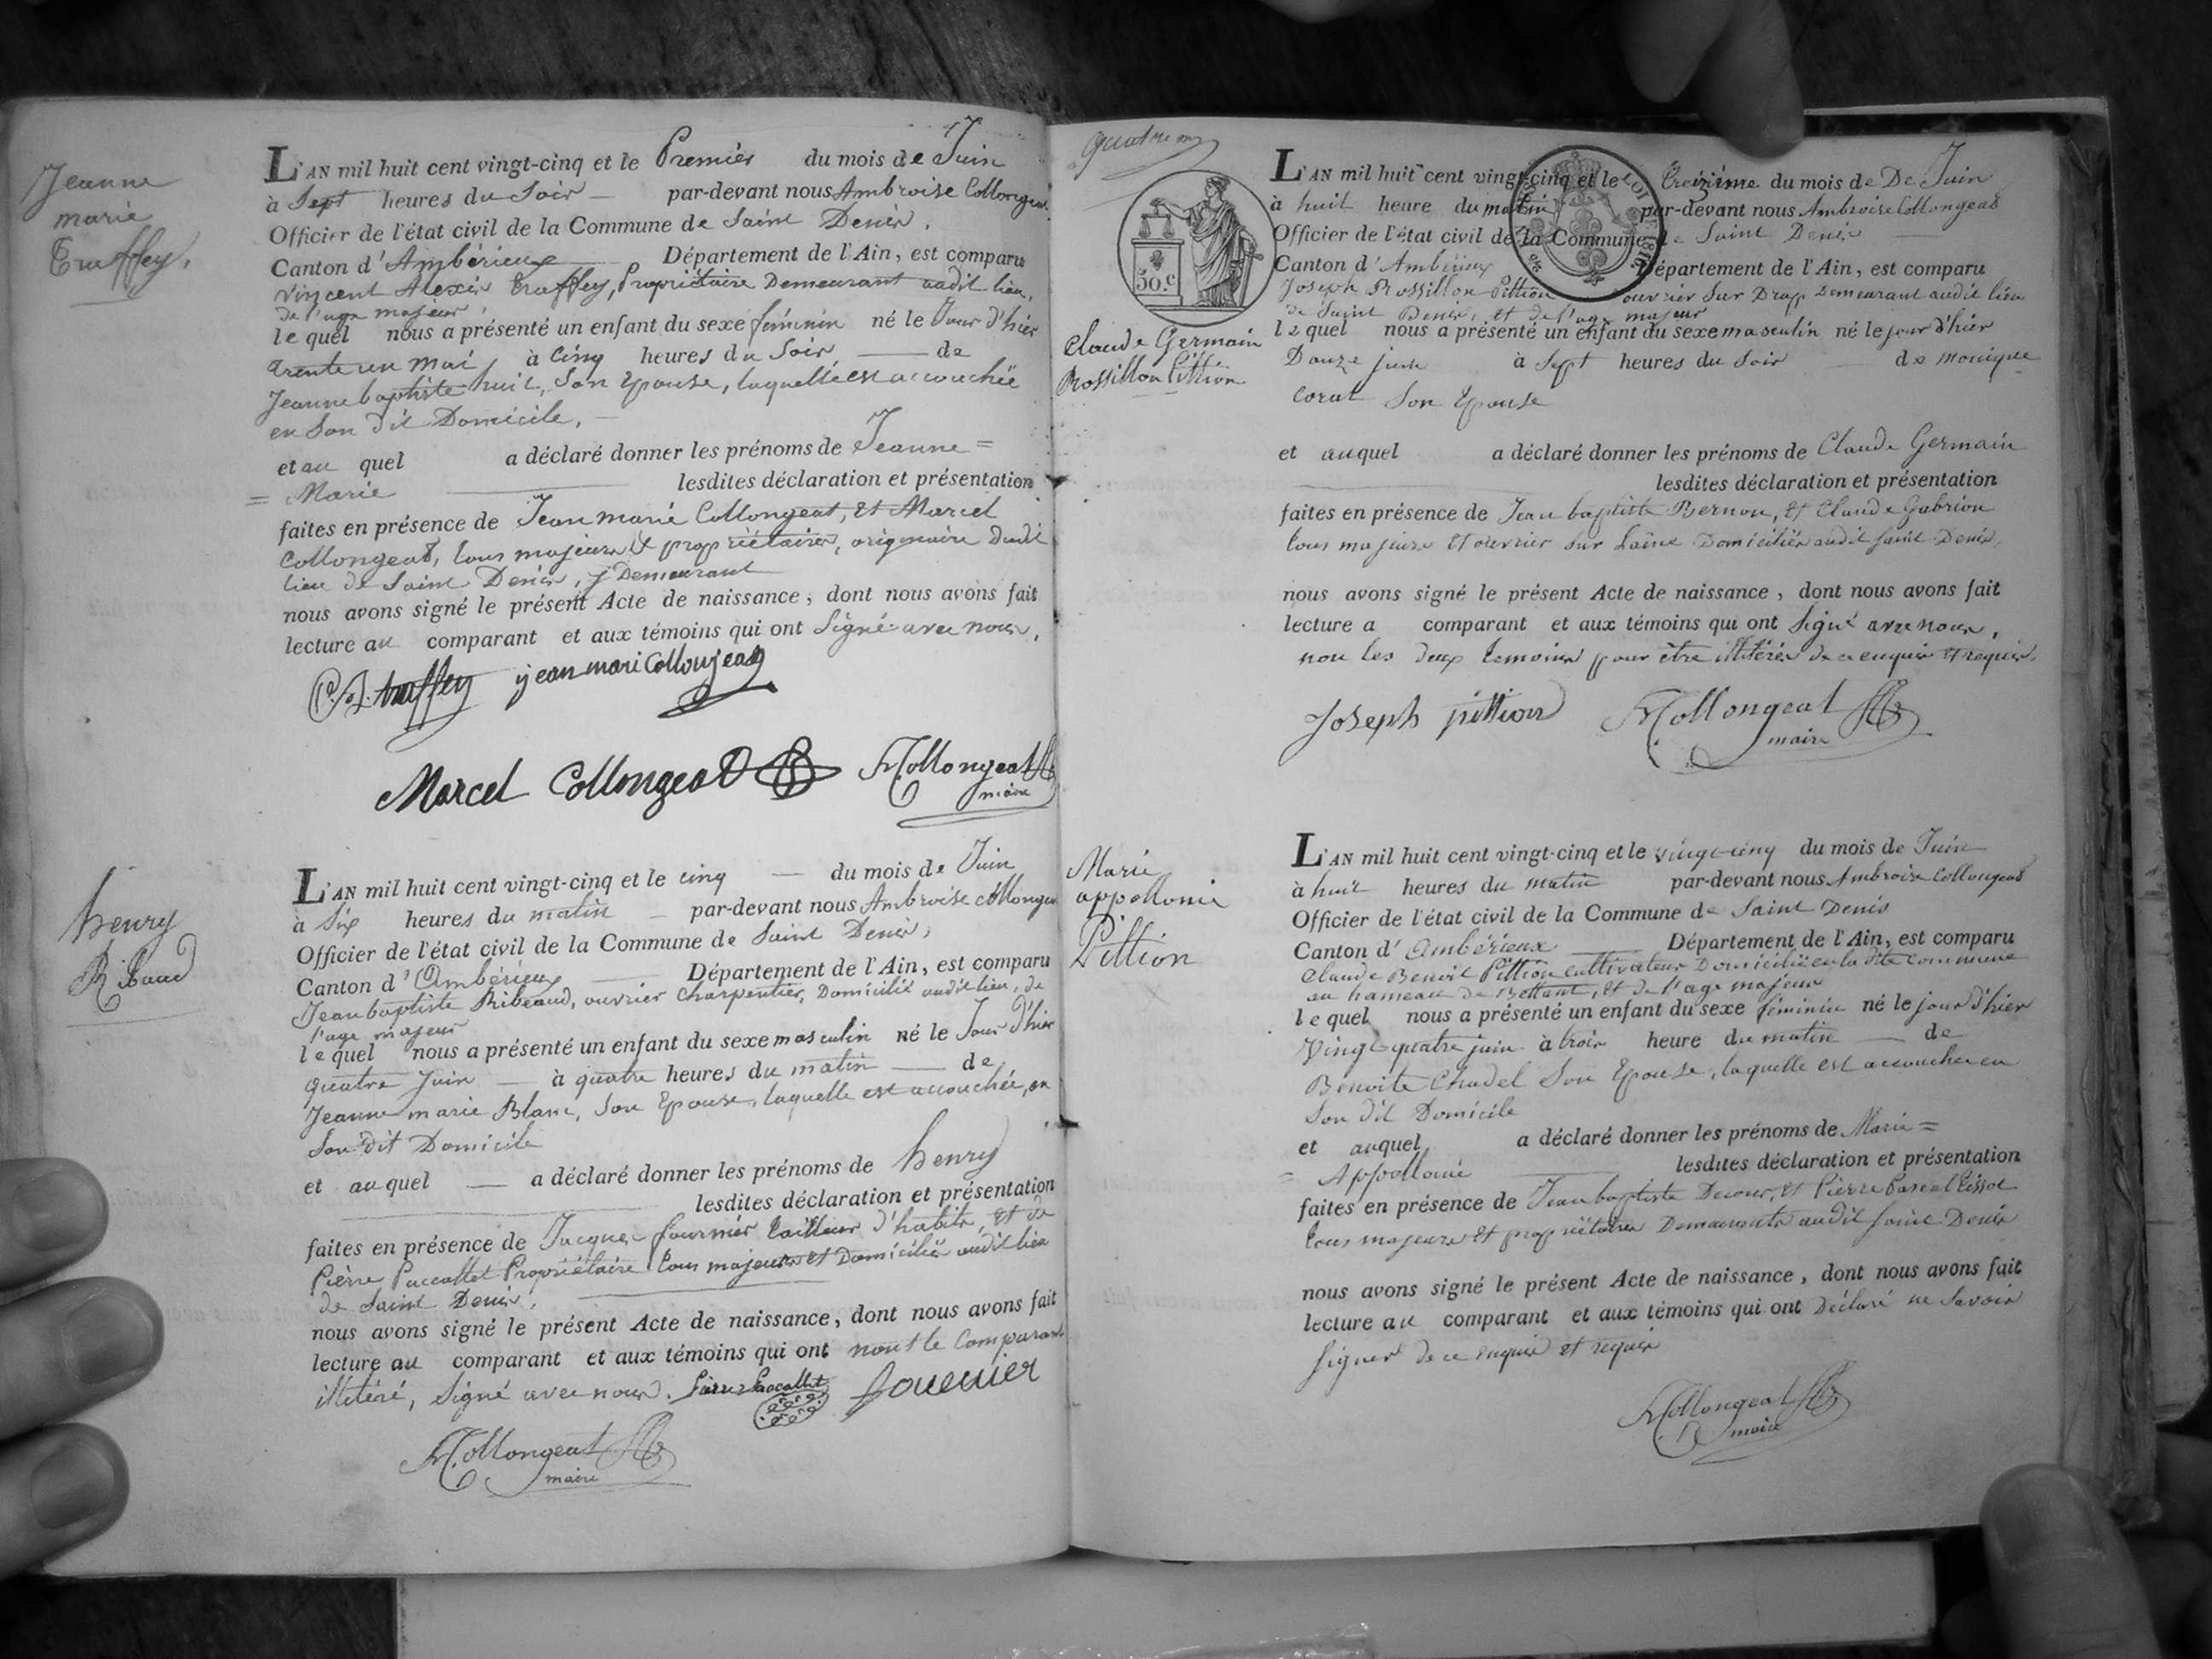 Jeanne
marie
Truffey.
L'AN mil huit cent vingt-cinq et le Premier du mois de Juin
à Sept heures du Soir par-devant nous Ambroise Collongeat
Officier de l'état civil de la Commune de Saint Denis,
Canton d'Ambérieux Département de l'Ain, est comparu
Vincent Alexis Truffey, Propriétaire Demeurant audit lieu,
de l'age majeur
le quel nous a présenté un enfant du sexe féminin né le Jour d'hier
trente un Mai à Cinq heures du Soir de
Jeanne baptiste huit, Son Epouse, laquelle est accouchée
en Son dit Domicile,
et au quel a déclaré donner les prénoms de Jeanne =
= Marie lesdites déclaration et présentation
faites en présence de Jean marie Collongeat, et Marcel
Collongeat, tous majeurs & propriétaires, originaire dudit
lieu de Saint Denis, y Demeurant
nous avons signé le présent Acte de naissance, dont nous avons fait
lecture au comparant et aux témoins qui ont Signé avec nous,
truffey jean mari Collonjeat
Marcel Collongeat Collongeat
maire
henry
Ribaud
L'AN mil huit cent vingt-cinq et le cinq du mois de Juin
à Six heures du matin par-devant nous Ambroise Collongeat
Officier de l'état civil de la Commune de Saint Denis,
Canton d'Ambérieux Département de l'Ain, est comparu
Jean baptiste Ribeaud, ouvrier Charpentier, Domicilié audit lieu, de
l'age majeur
le quel nous a présenté un enfant du sexe masculin né le Jour d'hier
quatre Juin à quatre heures du matin de
Jeanne marie Blanc, Son Epouse, laquelle est accouchée, en
Son dit Domicile
et au quel a déclaré donner les prénoms de henry
lesdites déclaration et présentation
faites en présence de Jacques fournier tailleur d'habits, et de
Pierre Paccallet Propriétaire tous majeurs et Domiciliés audit lieu
de Saint Denis,
nous avons signé le présent Acte de naissance, dont nous avons fait
lecture au comparant et aux témoins qui ont non le Comparant
illitéré, Signé avec nous. Pierre Pacallet fournier
Collongeat
maire
quatrieme
50.c
Claude Germain
Rossillon Pittion
L'AN mil huit cent vingt-cinq et le treizième du mois de De Juin
à huit heure du matin par-devant nous Ambroise Collongeat
Officier de l'état civil de la Commune de Saint Denis
Canton d'Ambérieux Département de l'Ain, est comparu
Joseph Rossillon Pittion ouvrier Sur Drap Demeurant audit lieu
de Saint Denis, et de l'age majeur
le quel nous a présenté un enfant du sexe masculin né le jour d'hier
Douze juin à Sept heures du Soir de monique
corat Son Epouse
et auquel a déclaré donner les prénoms de Claude Germain
lesdites déclaration et présentation
faites en présence de Jean baptiste Bernon, et Claude Gabrion
tous majeurs et ouvrier Sur Laine Domiciliés audit saint Denis,
nous avons signé le présent Acte de naissance, dont nous avons fait
lecture a comparant et aux témoins qui ont Signé avec nous,
non les deux temoins pour être illitérés de ce enquis et requis.
Joseph pittion Collongeat
maire
Marie
appollonie
Pittion
L'AN mil huit cent vingt-cinq et le vingt-cinq du mois de Juin
à huit heures du matin par-devant nous Ambroise Collongeat
Officier de l'état civil de la Commune de Saint Denis
Canton d'Ambérieux Département de l'Ain, est comparu
Claude Benoit Pittion cultivateur Domicilié en la dite commune
au hameau de Bettant, et de l'age majeur
le quel nous a présenté un enfant du sexe féminin né le jour d'hier
Vingt-quatre juin à trois heure du matin de
Benoite Chadel Son Epouse, laquelle est accouchée en
Son dit Domicile
et auquel a déclaré donner les prénoms de Marie =
= Appollonie lesdites déclaration et présentation
faites en présence de Jean baptiste Decour, et Pierre Pascal
tous majeurs et propriétaires Demeurants audit saint Denis
nous avons signé le présent Acte de naissance, dont nous avons fait
lecture au comparant et aux témoins qui ont Déclaré ne Savoir
Signer de ce enquis et requis
Collongeat
maire